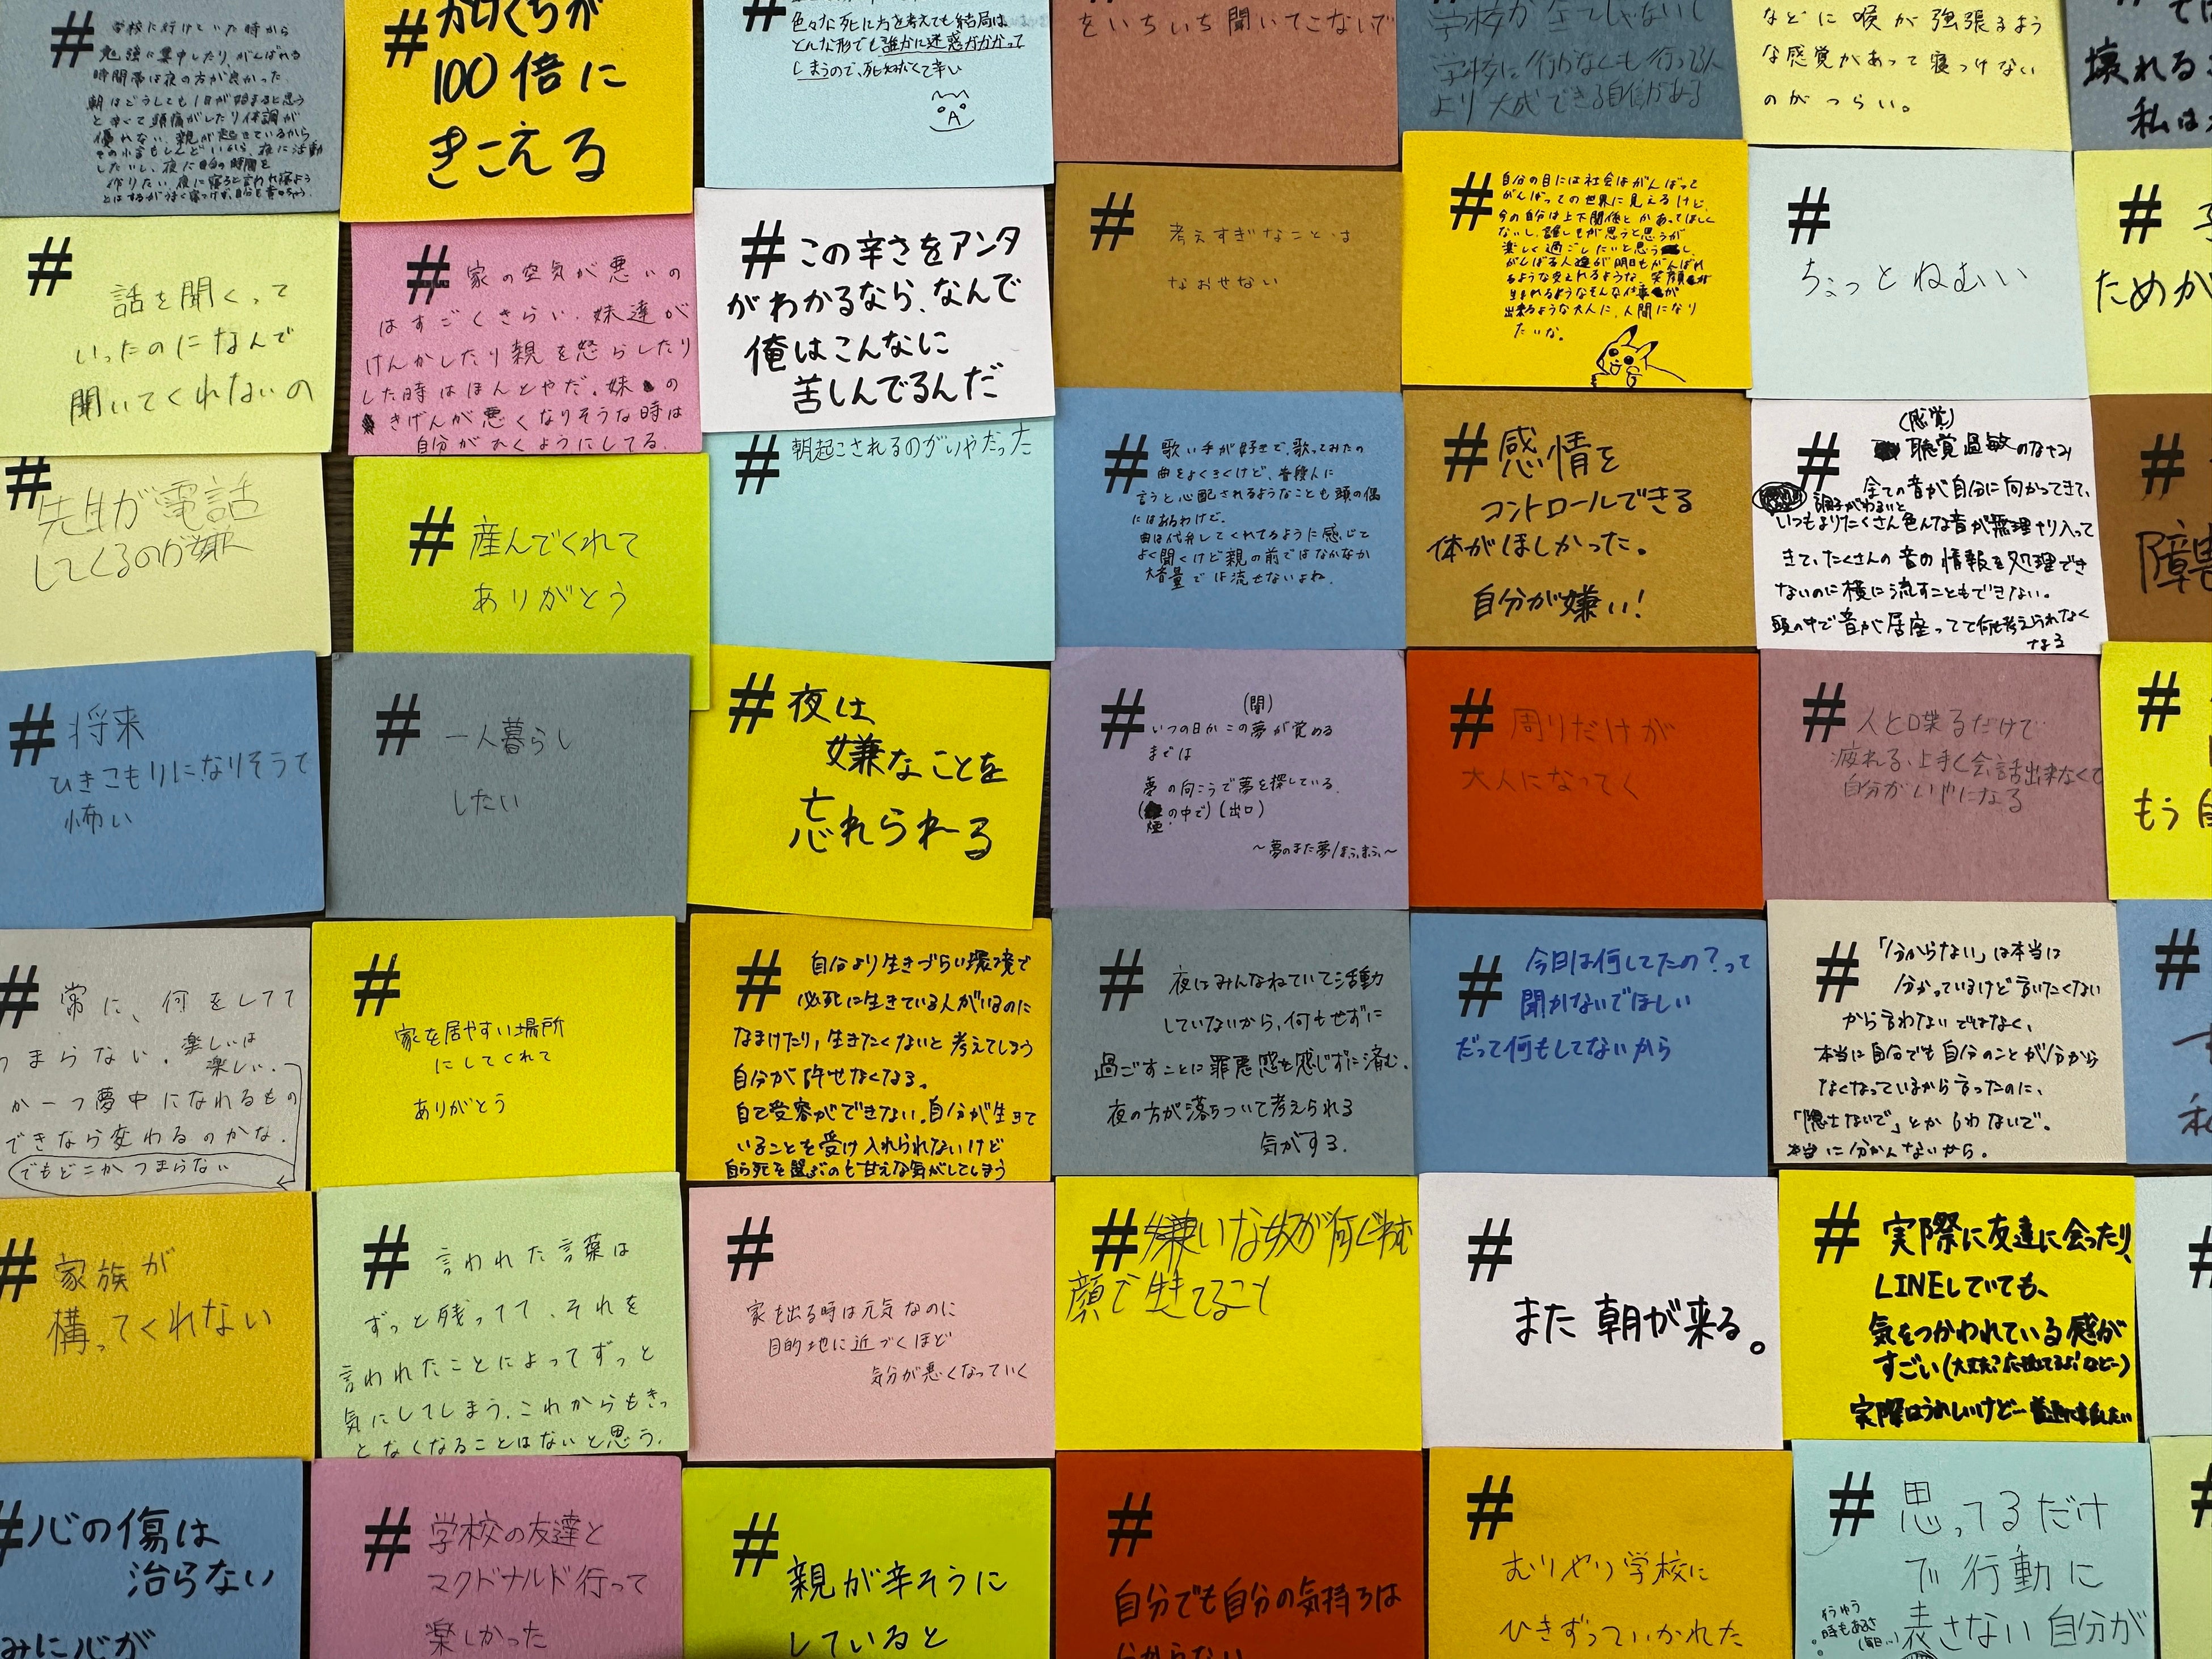 # 学校に行けていた時から
勉強に集中したり、がんばれる
時間帯は夜の方が良かった
朝はどうしても1日が始まると思う
と辛くて頭痛がしたり体調が
優れない。親が起きているから
その小言もしんどいから、夜に活動
したいし、夜に自分の時間を
作りたい。夜に寝ろと言われ寝よう
とはするがうまく寝つけず、自分を責めちゃう
#
100倍に
きこえる
#
色々な死に方を考えても結局は
どんな形でも誰かに迷惑がかかって
しまうので、死ねなくて辛い
をいちいち聞いてこないで
学校が全てじゃないし
学校に行かなくても行ってる人
より大成できる自信がある
などに喉が強張るよう
な感覚があって寝つけない
のがつらい。
壊れる
私は
#
話を聞くって
いったのになんで
聞いてくれないの
# 家の空気が悪いの
はすごくきらい。妹達が
けんかしたり親を怒らしたり
した時はほんとやだ。妹の
きげんが悪くなりそうな時は
自分がひくようにしてる。
# この辛さをアンタ
がわかるなら、なんで
俺はこんなに
苦しんでるんだ
# 考えすぎなことは
なおせない
# 自分の目には社会はがんばって
がんばっての世界に見えるけど、
今の自分は上下関係とかあってほしく
ないし、誰しもが思うと思うが
楽しく過ごしたいと思うし、
がんばる人達が明日もがんばれ
るような支えれるような、笑顔が
生まれるようなそんな仕事が
出来るような大人に、人間になり
たいな。
#
ちょっとねむい
#
ためが
#
先生が電話
してくるのが嫌
# 産んでくれて
ありがとう
# 朝起こされるのがいやだった
# 歌い手が好きで、歌ってみたの
曲をよくきくけど、普段人に
言うと心配されるようなことも頭の隅
にはあるわけで、
曲は代弁してくれてるように感じて
よく聞くけど親の前ではなかなか
大音量では流せないよね。
# 感情を
コントロールできる
体がほしかった。
自分が嫌い!
(感覚)
# 聴覚過敏のなやみ
全ての音が自分に向かってきて、
調子がわるいと
いつもよりたくさん色んな音が無理やり入って
きて、たくさんの音の情報を処理でき
ないのに横に流すこともできない。
頭の中で音が居座ってて何も考えられなく
なる
#
# 将来
ひきこもりになりそうで
怖い
# 一人暮らし
したい
# 夜は
嫌なことを
忘れられーる
#
(闇)
いつの日かこの夢が覚める
までは
夢の向こうで夢を探している。
(煙の中で)(出口)
〜夢のまた夢/まふまふ〜
# 周りだけが
大人になってく
# 人と喋るだけで
疲れる、上手く会話出来なくて
自分がいやになる
#
もう
# 常に、何をしてて
つまらない。楽しいは
楽しい。
か一つ夢中になれるもの
できなら変わるのかな。
でもどこかつまらない
#
家を居やすい場所
にしてくれて
ありがとう
# 自分より生きづらい環境で
必死に生きている人がいるのに
なまけたり、生きたくないと考えてしまう
自分が許せなくなる。
自己受容ができない。自分が生きて
いることを受け入れられないけど
自ら死を選ぶのも甘えな気がしてしまう
# 夜はみんなねていて活動
していないから、何もせずに
過ごすことに罪悪感を感じずに済む。
夜の方が落ちついて考えられる
気がする。
# 今日は何してたの?って
聞かないでほしい
だって何もしてないから
# 「分からない」は本当は
分かっているけど言いたくない
から言わないではなく、
本当に自分でも自分のことが分から
なくなっているから言ったのに、
「隠さないで」とか言わないで。
本当に分かんないから。
#
# 家族が
構ってくれない
# 言われた言葉は
ずっと残ってて、それを
言われたことによってずっと
気にしてしまう。これからもきっ
となくなることはないと思う。
#
家を出る時は元気なのに
目的地に近づくほど
気分が悪くなっていく
# 嫌いな奴が何じゃむ
顔で生きてること
#
また朝が来る。
# 実際に友達に会ったり、
LINEしていても、
気をつかわれている感が
すごい
実際はうれしいけどー
# 心の傷は
治らない
みに心が
# 学校の友達と
マクドナルド行って
楽しかった
#
親が辛そうに
していると
#
自分でも自分の気持ちは
分からない
#
むりやり学校に
ひきずっていかれた
# 思ってるだけ
で行動に
表さない自分が